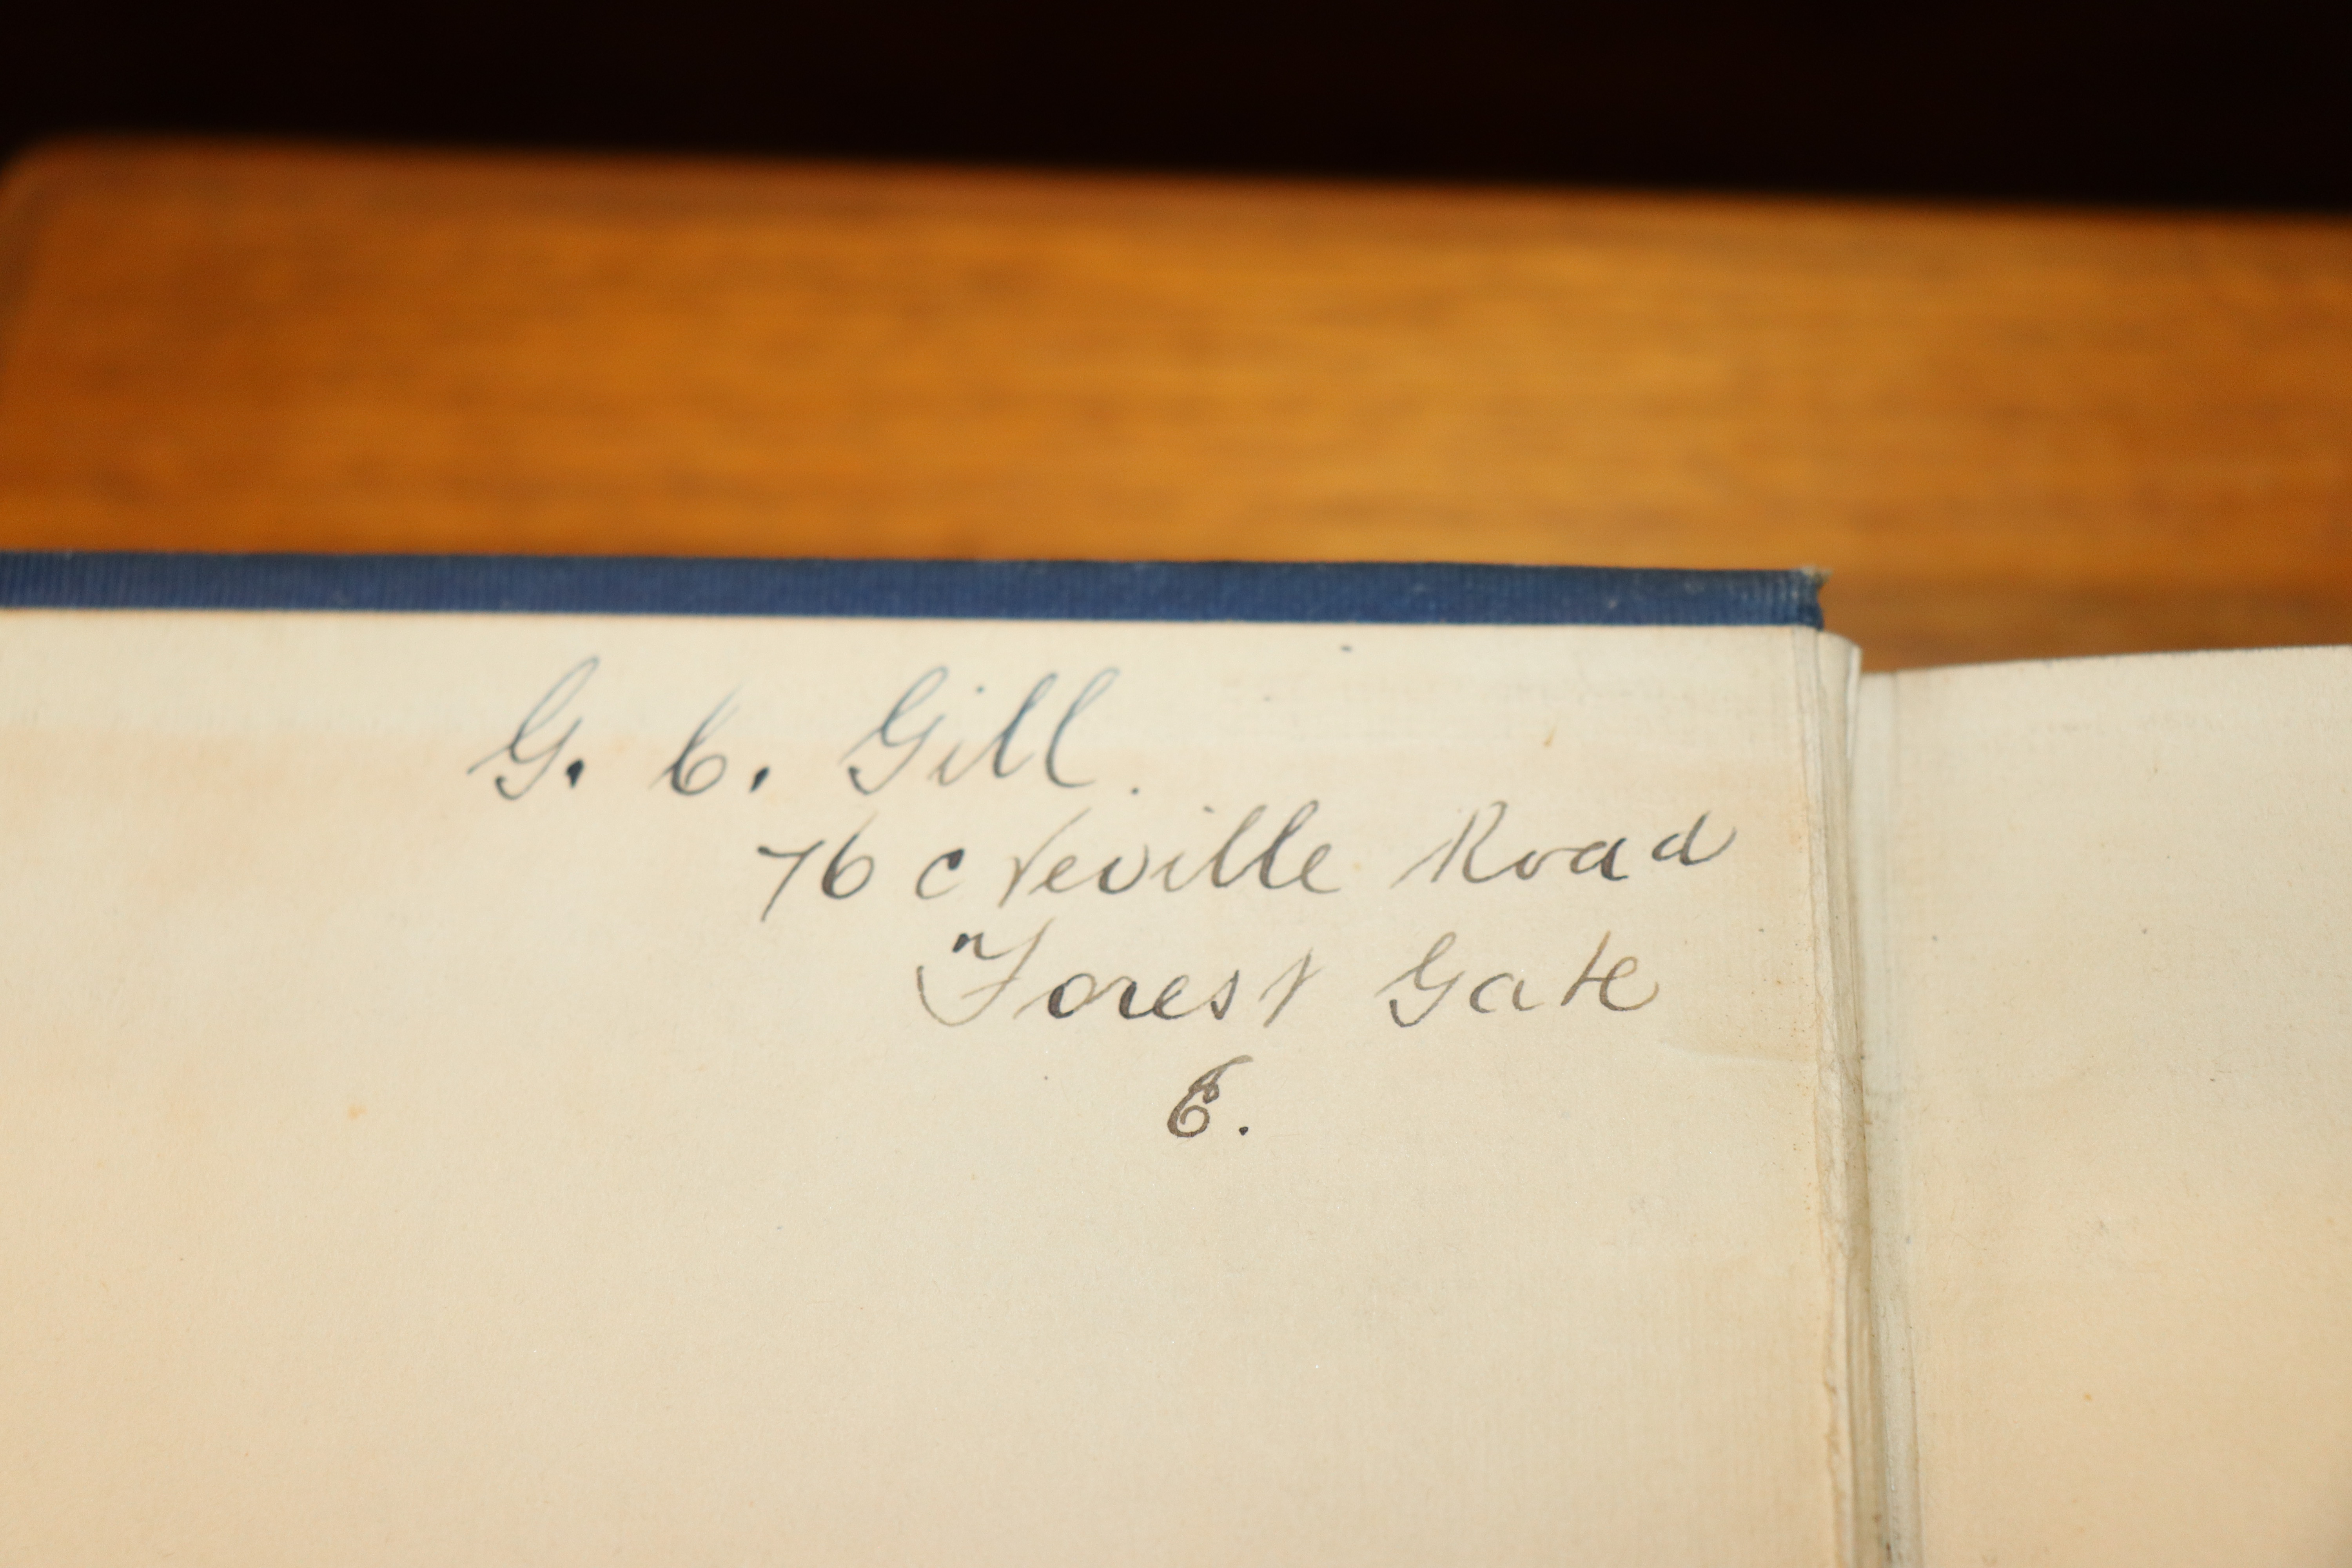 G. C. Gill.
76 Neville Road
Forest Gate
E.